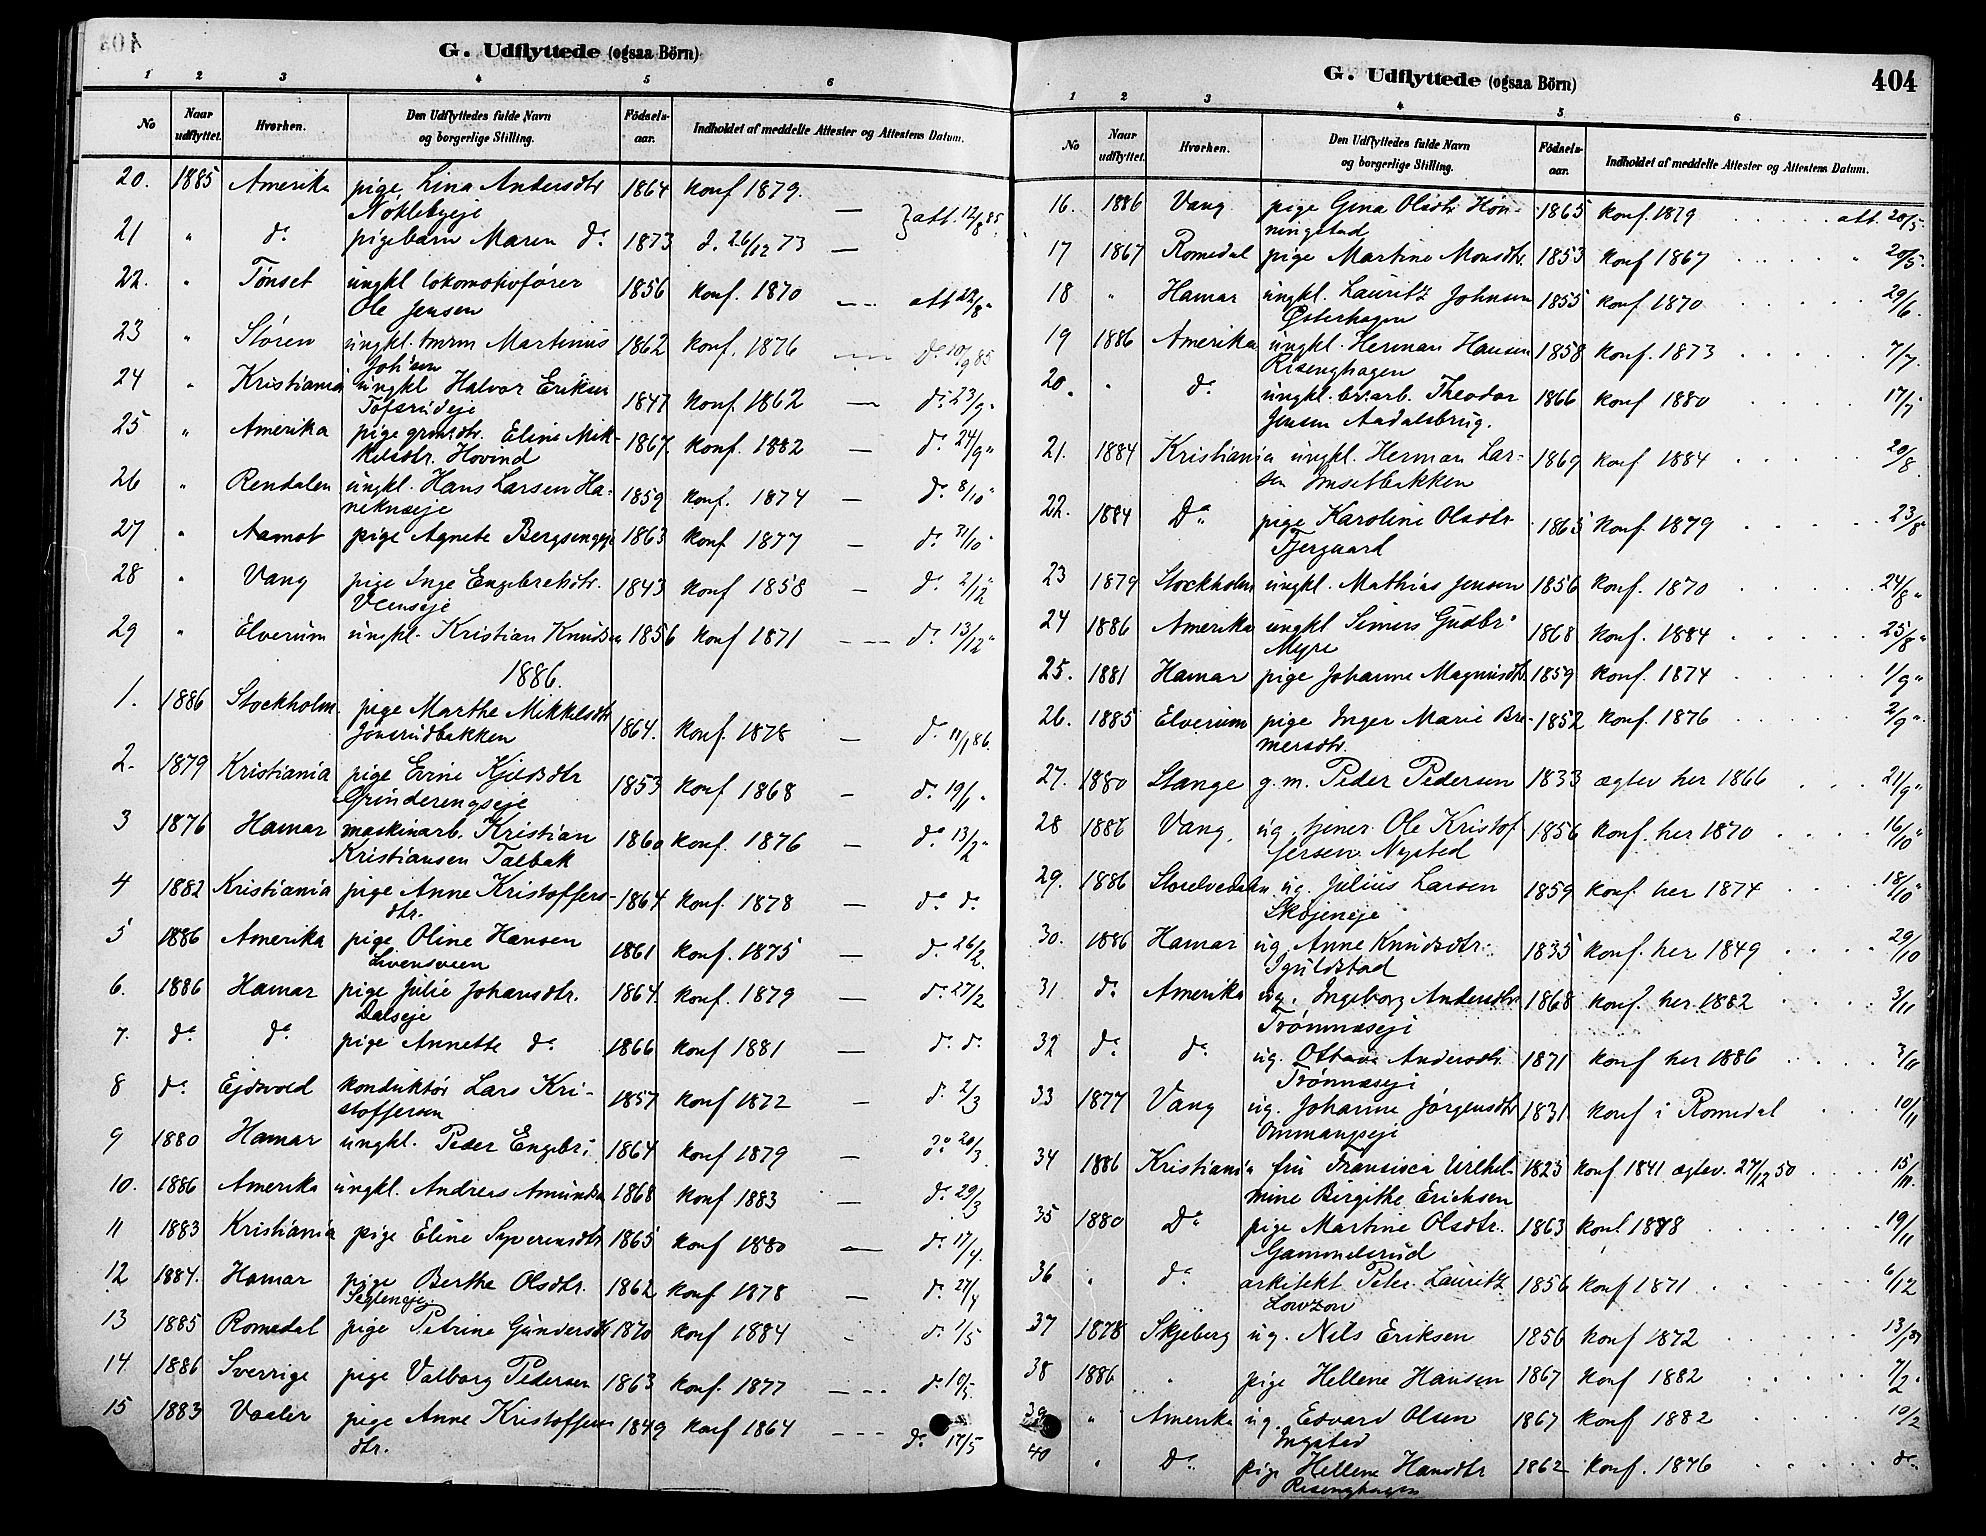 G. Udflyttede (ogsaa Börn)
1 2 3 4 5 6
No Naar udflyttet. Hvorhen. Den Udflyttedes fulde Navn og borgerlige Stilling. Födsels-aar. Indholdet af meddelte Attester og Attestens Datum.
20. 1885 Amerika pige Lina Andersdtr 1864 konf 1879.
Nöklebyeje — } att. 12/8 85.
21 " do pigebarn Maren do 1873 d. 26/12 73 —
22. " Tønset ungkl lokomotivfører 1856 konf. 1870 — att 22/8 "
Ole Jensen
23 " Støren ungkl. tmrm Martinus 1862 konf. 1876 — do 10/9 85
Johsen
24 " Kristiania ungkl Halvor Eriksen 1847 konf. 1862 — do 23/9 "
Tofsrudeje
25 " Amerika pige grmsdtr. Eline Mik- 1867. konf. 1882 — do 24/9 "
kelsdtr. Hovind
26 " Rendalen ungkl. Hans Larsen Ha- 1859 konf. 1874 — do 8/10 "
neknæeje
27 " Aamot pige Agnete Bergsengeje 1863 konf 1877 — do 31/10 "
28 " Vang pige Inge Engebretsdtr. 1843 konf 1858 — do 2/12 "
Veenseje
29 " Elverum ungkl. Kristian Knudsen 1856 konf 1871 — do 13/12 "
1886.
1. 1886 Stockholm pige Marthe Mikkelsdtr 1864. konf. 1878 — do 11/1 86.
Jønsrudbakken
2. 1879 Kristiania pige Evine Kjeldsdtr 1853 konf 1868 — do 19/1 "
Grinderengseje
3 1876 Hamar maskinarb. Kristian 1860 konf. 1876 — do 13/2 "
Kristiansen Talbak
4 1882 Kristiania pige Anne Kristoffers- 1864 konf. 1878 — do do
dtr.
5 1886 Amerika pige Oline Hansen 1861 konf. 1875 — do 26/2.
6. 1886 Hamar pige Julie Johansdtr. 1864 konf. 1879 — do 27/2
Dalseje
7. do do pige Annette do 1866 konf 1881 — do do
8 do Ejdsvold konduktör Lars Kri- 1857 konf 1872 — do 2/3
stoffersen
9 1880 Hamar ungkl. Peder Engebr: 1864 konf 1879 — do 20/3
10. 1886 Amerika ungkl. Andreas Amundsn 1868 konf 1883 — do 29/3
11 1883 Kristiania pige Eline Syverensdtr 1865 konf 1880 — do 17/4.
12 1884. Hamar pige Berthe Olsdtr. 1862 konf 1878 — do 27/4
13 1885 Romedal pige Petrine Gundersdtr 1870 konf 1884 — do 1/5
14 1886 Sverrige pige Valborg Pedersen 1863 konf. 1877 — do 10/5
15 1883 Vaaler pige Anne Kristoffers- 1849 konf 1864 — do 17/5
dtr.
G. Udflyttede (ogsaa Börn) 404
1 2 3 4 5 6
No Naar udflyttet. Hvorhen. Den Udflyttedes fulde Navn og borgerlige Stilling. Födsels-aar. Indholdet af meddelte Attester og Attestens Datum.
16. 1886 Vang pige Gina Olsdtr Høn- 1865 konf. 1879 att. 20/5.
ningstad
17 1867 Romedal pige Martine Monsdtr. 1853 konf 1867 " 20/5.
18 " Hamar ungkl. Lauritz Johnsen 1855 konf 1870 29/6.
Østerhagen
19 1886 Amerika ungkl. Herman Hansen 1858 konf. 1873 7/7.
Risenghagen
20. " do ungkl. br.arb. Theodor 1866 konf 1880 17/7
Jensen Aadalsbrug.
21. 1884 Kristiania ungkl. Herman Lar- 1869 konf 1884 20/8.
sen Imsetbakken
22. 1884 Do pige Karoline Olsdtr 1865 konf 1879 23/8 "
Fjergaard
23 1879 Stockholm ungkl. Mathias Jensen 1856 konf. 1870 24/8 "
24 1886 Amerika ungkl Simers Gudbr: 1868 konf. 1884 25/8 "
Myre
25. 1881 Hamar pige Johanne Magnusdtr 1859 konf. 1874 1/9 "
26. 1885 Elverum pige Inger Marie Bre- 1852 konf. 1876 2/9 "
mersdtr.
27. 1880 Stange g.m. Peder Pedersen 1833 ægtev her 1866 21/9 "
28 1886 Vang. ug. tjener Ole Kristof 1856 konf. her 1870 16/10 "
fersen Nysted
29. 1886 Storelvedalen ug. Julius Larsen 1859 konf. her 1874 18/10 "
Skøjeneje
30. 1886 Hamar ug. Anne Knudsdtr. 1835 konf. her 1849 29/10
Iguldstad
31 do Amerika ug. Ingeborg Andersdtr 1868 konf. her 1882 3/11
Trønnæseje
32 do do ug. Ottava Andersdtr. 1871 konf her 1886 3/11
Trønnæseje
33 1877 Vang ug. Johanne Jørgensdtr 1831 konf i Romedal 10/11
Ommangseje
34 1886 Kristiania fru Fransisca Wilhel- 1825 konf 1841 ægtev. 27/12 50 15/11.
mine Birgithe Erichsen
35 1880 Do pige Martine Olsdtr. 1863 konf. 1878 19/11
Gammelsrud
36 " do arkitekt Peter Lauritz 1856 konf 1871 6/12
Lowzon
37 1878 Skjeberg ug. Nils Eriksen 1856 konf 1872 13/1 87
38 1886 " pige Hellene Hansen 1867 konf 1882 7/2.
39 " Amerika ug. Edvard Olsen 1867 konf 1882 10/2
Ingstad
40 " Do pige Hellene Hansdtr 1862 konf. 1876 do
Risenghagen